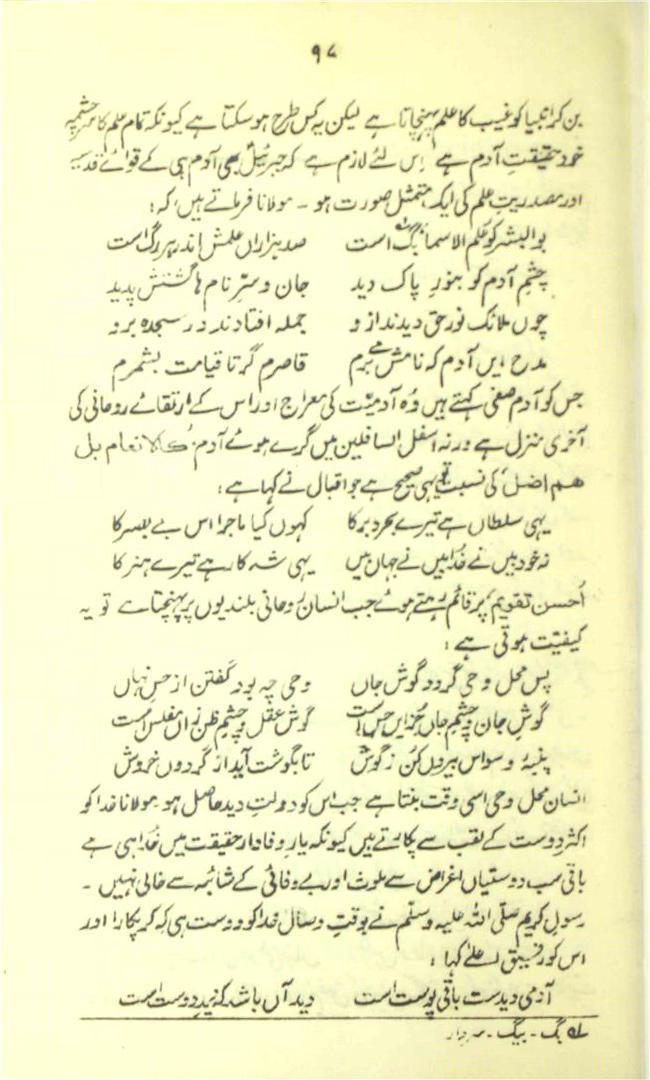 ۹۷
بن کر انبیا کو غیب کا علم پہنچاتا ہے لیکن یہ کس طرح ہو سکتا ہے کیونکہ تمام علم کا سرچشمہ
خود حقیقتِ آدم ہے اِس لئے لازم ہے کہ جبرئیلؑ بھی آدم ہی کے قوائے قدسیہ
اور مصدریتِ علم کی ایک متمثل صورت ہو ۔ مولانا فرماتے ہیں کہ :
بوالبشر کو علّم الاسما بگ لہ است صد ہزاراں علمش اندر ہر رگ است
چشمِ آدم کو بنورِ پاک دید جان و سرِّ نام ہا گشتش پدید
چوں ملائک نورِ حق دیدند ازو جملہ افتادند در سجدہ برو
مدحِ ایں آدم کہ نامش مے برم قاصرم گر تا قیامت بشمرم
جس کو آدم صفی کہتے ہیں وُہ آدمیّت کی معراج اور اس کے ارتقائے روحانی کی
آخری منزل ہے ورنہ اسفل السافلین میں گرے ہوئے آدم: کالانعام بل
ھم اضل کی نسبت تو یہی صحیح ہے جو اقبال نے کہا ہے :
یہی سلطاں ہے تیرے بحر و بر کا کہوں کیا ماجرا اس بے بصر کا
نہ خود بیں نے خدا بیں نے جہاں بیں یہی شہ کار ہے تیرے ہنر کا
اُحسن تقویم، پر قائم رہتے ہوئے جب انسان رُوحانی بلندیوں پر پہنچتا ہے تو یہ
کیفیّت ہوتی ہے :
پس محل وحی گردد گوشِ جاں وحی چہ بود گفتن از حسِ نہاں
گوشِ جان و چشمِ جاں جُز ایں حس است گوشِ عقل و چشمِ ظن زاں مفلس است
پنبۂ وسواس بیروں کُن ز گوش تا بگوشت آید از گردوں خروش
انسان محل وحی اسی وقت بنتا ہے جب اس کو دولتِ دید حاصل ہو۔ مولانا خدا کو
اکثر دوست کے لقب سے پکارتے ہیں کیونکہ یارِ وفادار حقیقت میں خدا ہی ہے
باقی سب دوستیاں اغراض سے ملوث اور بے وفائی کے شائبہ سے خالی نہیں ۔
رسولِ کریم صلی اللہ علیہ وسلّم نے بوقتِ وصال خدا کو دوست ہی کہہ کر پکارا اور
اس کو رفیق اعلےٰ کہا :
آدمی دیدست باقی پوست است دید آں باشد کہ دیدِ دوست است
لہ بگ ۔ بیگ ۔ سردار